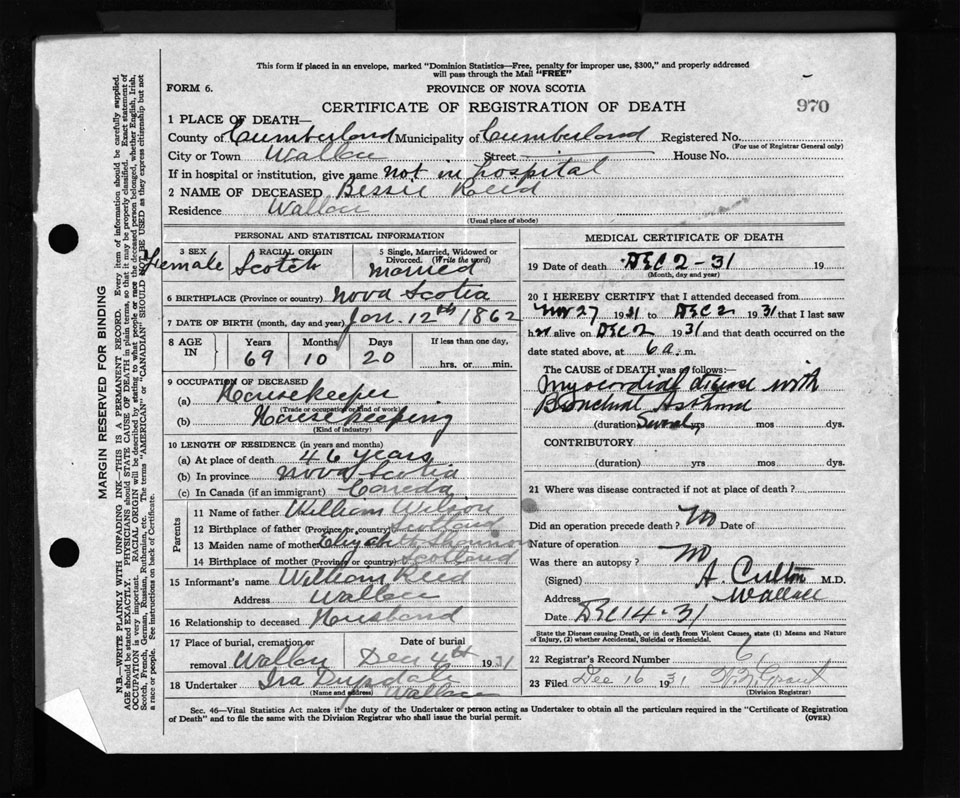 This form if placed in an envelope, marked "Dominion Statistics—Free, penalty for improper use, $300," and properly addressed
will pass through the Mail "FREE"
FORM 6.
PROVINCE OF NOVA SCOTIA
CERTIFICATE OF REGISTRATION OF DEATH
970
1 PLACE OF DEATH—
County of Cumberland Municipality of Cumberland Registered No.
(For use of Registrar General only)
City or Town Wallace Street House No.
If in hospital or institution, give name not in hospital
2 NAME OF DECEASED Bessie Reed
Residence Wallace
(Usual place of abode)
PERSONAL AND STATISTICAL INFORMATION
3 SEX RACIAL ORIGIN 5 Single, Married, Widowed or
Divorced. (Write the word)
Female Scotch Married
6 BIRTHPLACE (Province or country) Nova Scotia
7 DATE OF BIRTH (month, day and year) Jan. 12th 1862
8 AGE IN Years Months Days If less than one day,
69 10 20 hrs. or min.
9 OCCUPATION OF DECEASED
(a) Housekeeper
(Trade or occupation or kind of work)
(b) Housekeeping
(Kind of industry)
10 LENGTH OF RESIDENCE (in years and months)
(a) At place of death 46 years
(b) In province Nova Scotia
(c) In Canada (if an immigrant) Canada
Parents
11 Name of father William Wilson
12 Birthplace of father (Province or country) Scotland
13 Maiden name of mother Elizabeth Shannon
14 Birthplace of mother (Province or country) Scotland
15 Informant's name William Reed
Address Wallace
16 Relationship to deceased Husband
17 Place of burial, cremation or removal Wallace
Date of burial Dec 4th 1931
18 Undertaker Ira
(Name and address) Wallace
MEDICAL CERTIFICATE OF DEATH
19 Date of death DEC 2-31 19
(Month, day and year)
20 I HEREBY CERTIFY that I attended deceased from
Nov 27 1931 to DEC 2 1931 that I last saw
her alive on DEC 2 1931 and that death occurred on
date stated above, at 6 a. m.
The CAUSE of DEATH was as follows:—
Myocordial disease with
Bronchial Asthma
(duration) Several yrs mos dys.
CONTRIBUTORY
(duration) yrs mos dys.
21 Where was disease contracted if not at place of death?
Did an operation precede death? No Date of
Nature of operation
Was there an autopsy? No
(Signed) A. Culton M.D.
Address Wallace
Date DEC 14-31
State the Disease causing Death, or in death from Violent Causes, state (1) Means and Nature
of Injury, (2) whether Accidental, Suicidal or Homicidal.
22 Registrar's Record Number
23 Filed Dec 16 1931 Grant
(Division Registrar)
Sec. 46—Vital Statistics Act makes it the duty of the Undertaker or person acting as Undertaker to obtain all the particulars required in the "Certificate of Registration
of Death" and to file the same with the Division Registrar who shall issue the burial permit.
(OVER)
MARGIN RESERVED FOR BINDING
N.B.—WRITE PLAINLY WITH UNFADING INK—THIS IS A PERMANENT RECORD. Every item of information should be carefully supplied.
AGE should be stated EXACTLY. PHYSICIANS should STATE CAUSE OF DEATH in plain terms, so that it may be properly classified. Exact statement of
OCCUPATION is very important. RACIAL ORIGIN will be described by stating to what people or race the deceased person belonged, whether English, Irish,
Scotch, French, German, Russian, Ruthenian, etc. The terms "AMERICAN" or "CANADIAN" SHOULD NOT BE USED as they express citizenship but not
a race or people. See instructions on back of Certificate.